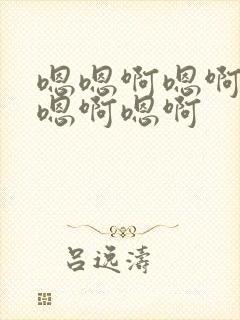 嗯嗯啊嗯啊
嗯啊嗯啊
吕远涛